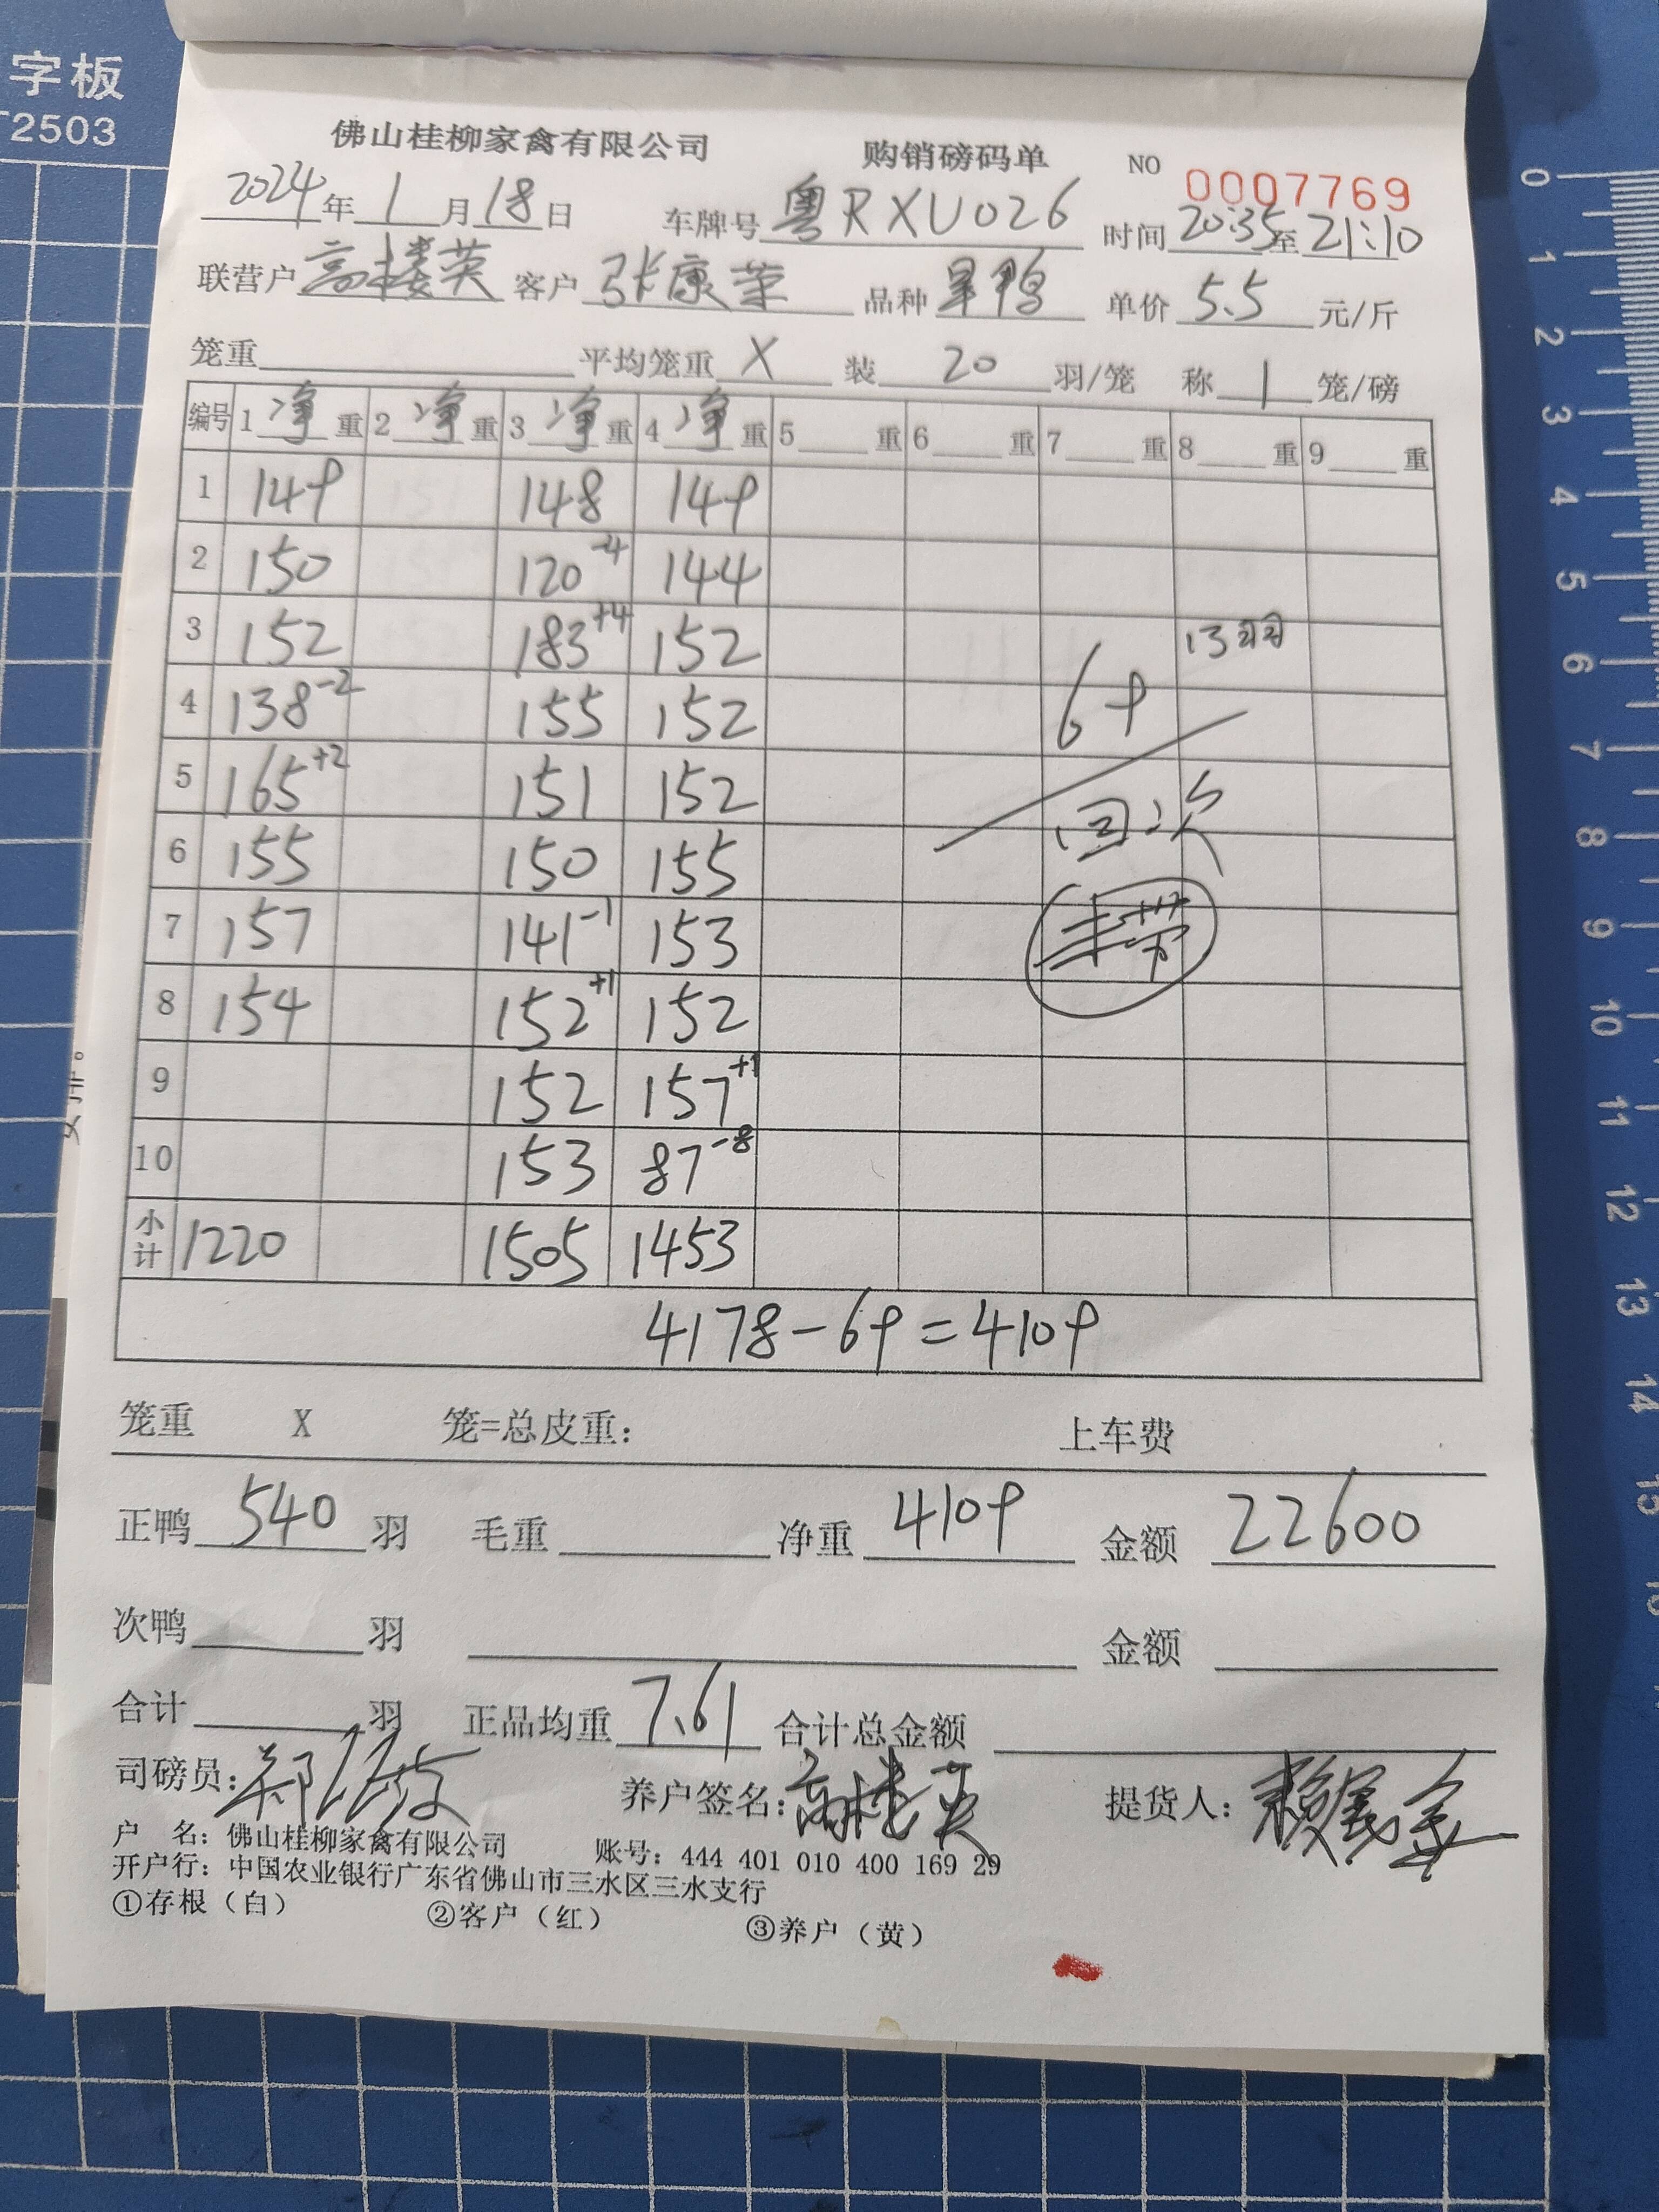 字板
T2503
佛山桂柳家禽有限公司 购销磅码单 NO 0007769
2024年1月18日 车牌号 粤RXU026 时间20:35至21:10
联营户 高楼英 客户 张康荣 品种 旱鸭 单价 5.5 元/斤
笼重 平均笼重 X 装 20 羽/笼 称 1 笼/磅
编号 1 净 重 2 净 重 3 净 重 4 净 重 5 重 6 重 7 重 8 重 9 重
1 149 148 149
2 150 120-4 144
3 152 183+4 152 13羽
4 138-2 155 152 69
5 165+2 151 152 回次
6 155 150 155
7 157 141-1 153
8 154 152+1 152
9 152 157+1
10 153 87-8
小计 1220 1505 1453
4178-69=4109
笼重 X 笼=总皮重: 上车费
正鸭 540 羽 毛重 净重 4109 金额 22600
次鸭 羽 金额
合计 羽 正品均重 7.61 合计总金额
司磅员: 养户签名: 高楼英 提货人:
户 名: 佛山桂柳家禽有限公司 账号: 444 401 010 400 169 29
开户行: 中国农业银行广东省佛山市三水区三水支行
①存根（白） ②客户（红） ③养户（黄）
0
1
2
3
4
5
6
7
8
9
10
11
12
13
14
15